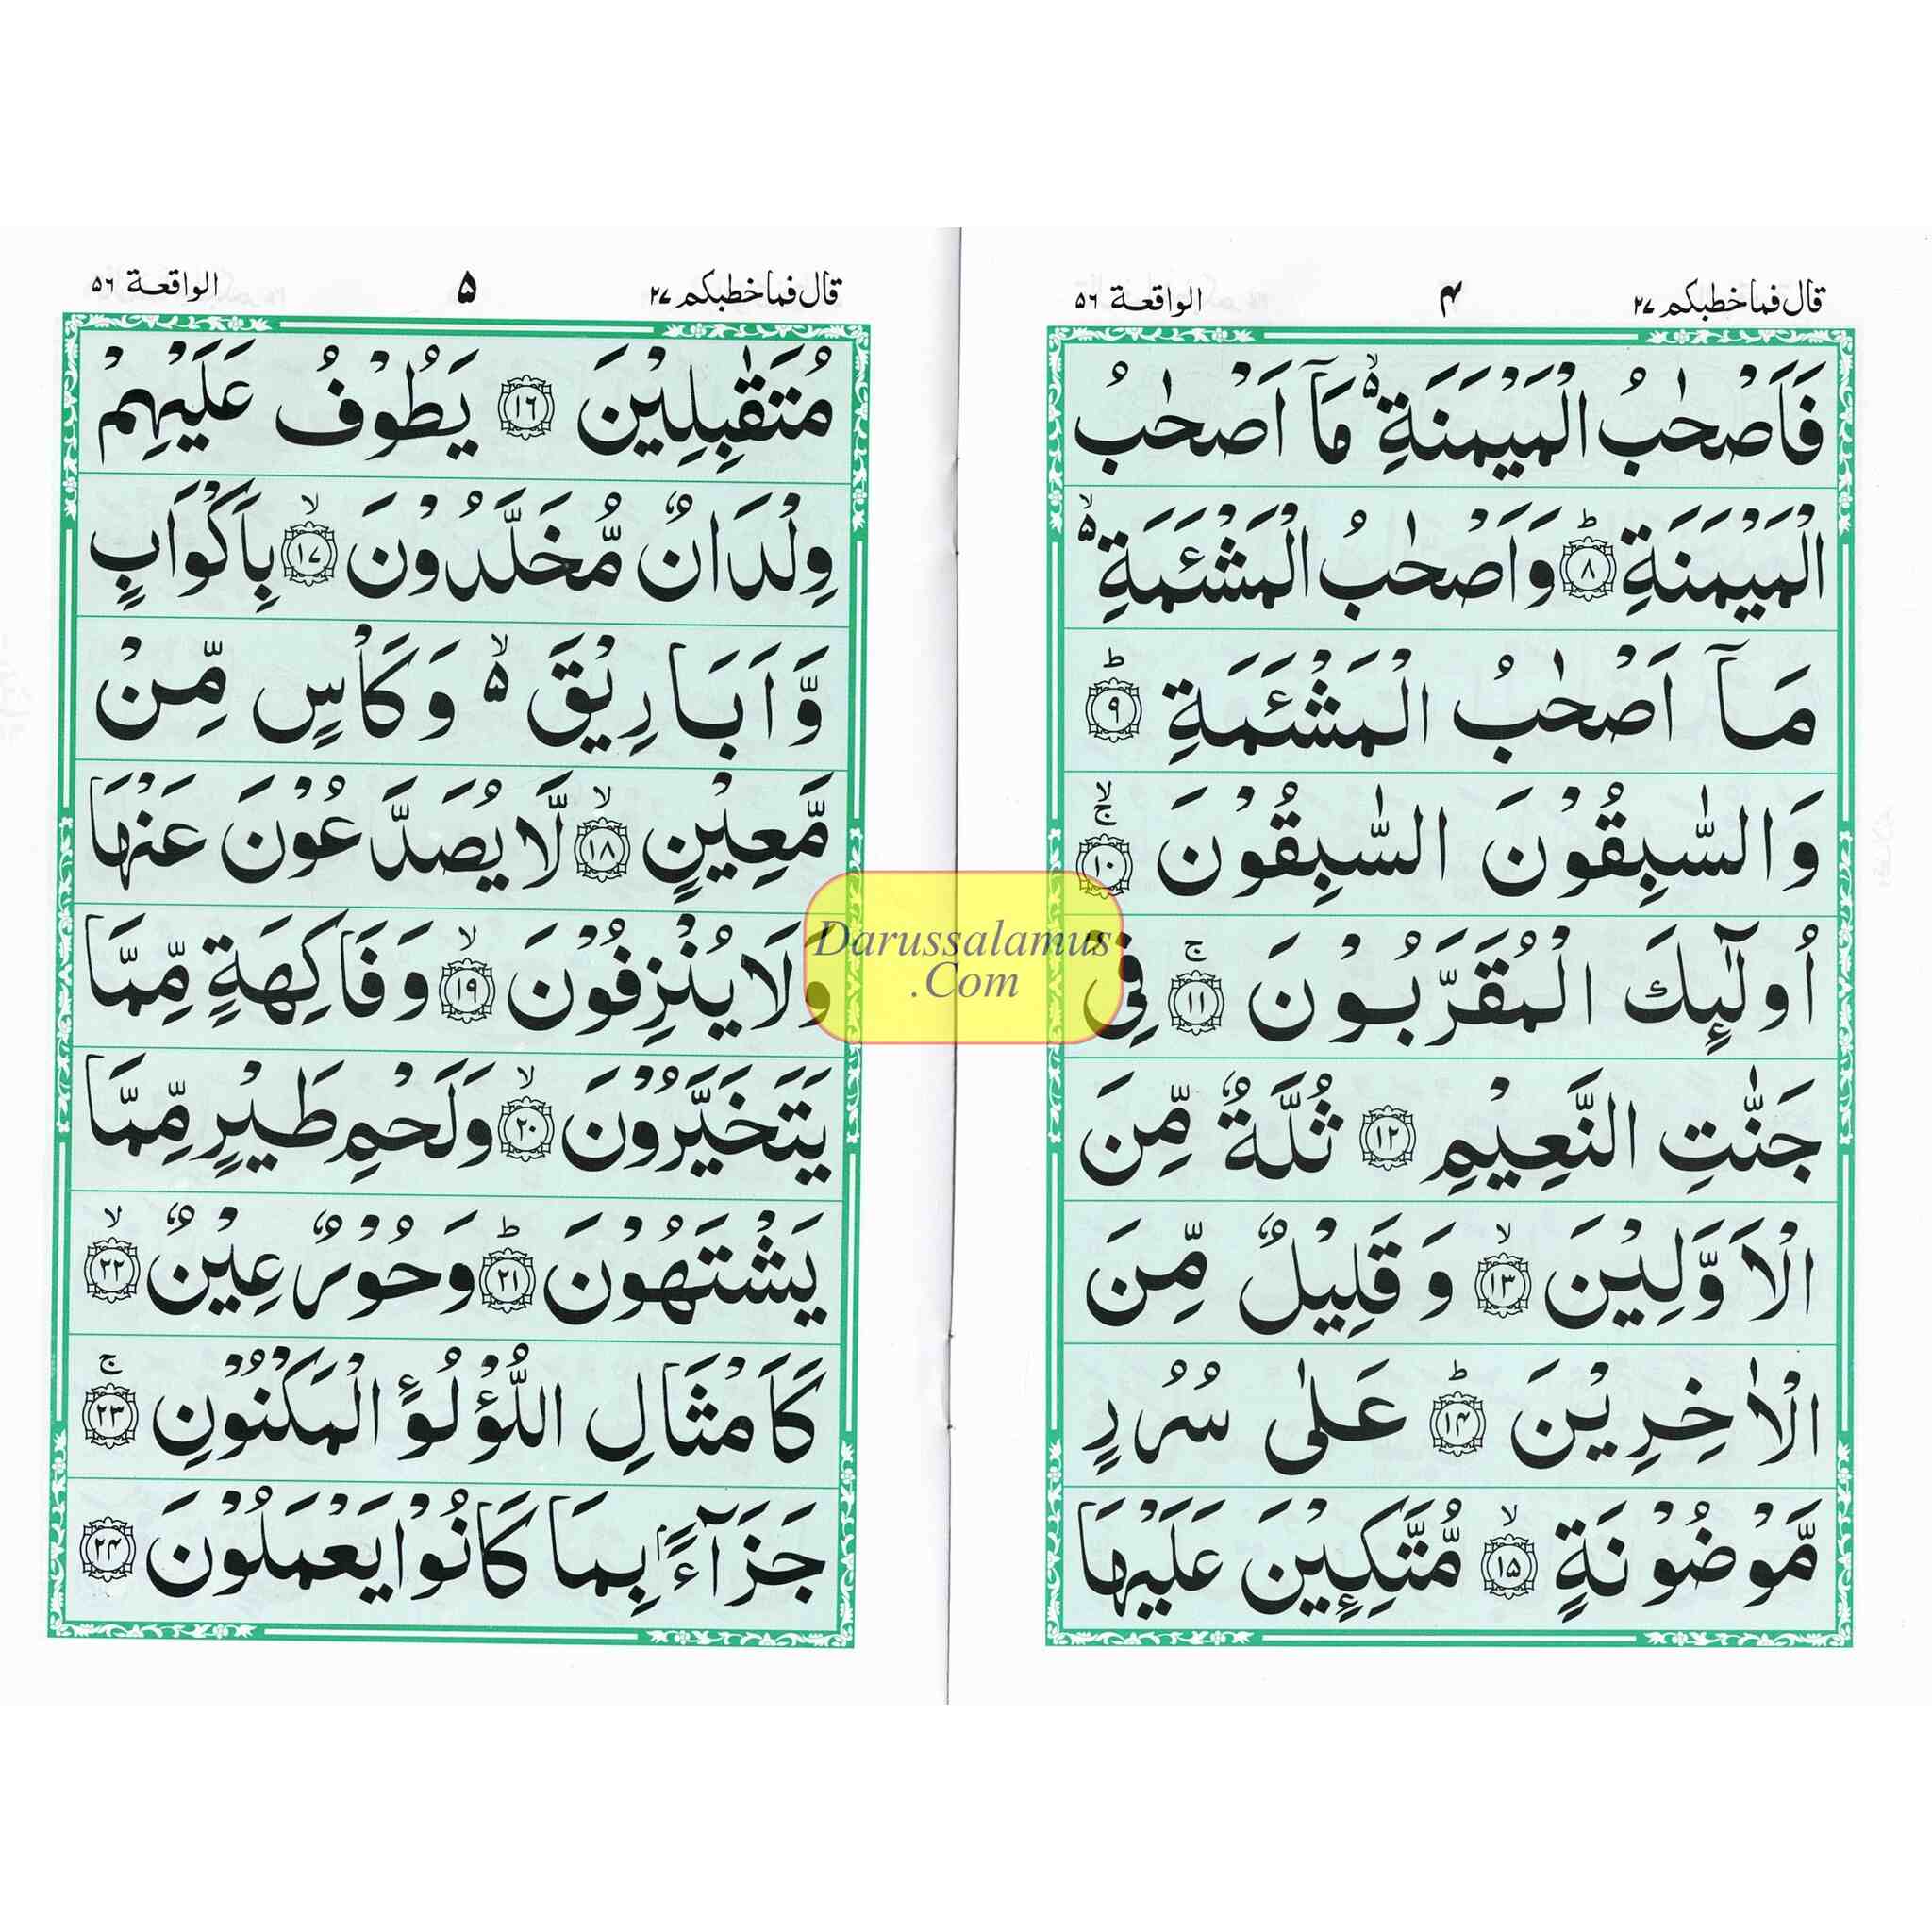 قال فما خطبكم ٢٧
۴
الواقعة ٥٦
فَاَصْحٰبُ الْمَيْمَنَةِ ۙ۬ مَاۤ اَصْحٰبُ
الْمَيْمَنَةِ ؕ ﴿٨﴾ وَاَصْحٰبُ الْمَشْـَٔمَةِ ۙ۬
مَاۤ اَصْحٰبُ الْمَشْـَٔمَةِ ؕ ﴿٩﴾
وَالسّٰبِقُوْنَ السّٰبِقُوْنَ ۚۙ ﴿١٠﴾
اُولٰٓئِكَ الْمُقَرَّبُوْنَ ۚ ﴿١١﴾ فِیْ
جَنّٰتِ النَّعِيْمِ ﴿١٢﴾ ثُلَّةٌ مِّنَ
الْاَوَّلِيْنَ ۙ ﴿١٣﴾ وَقَلِيْلٌ مِّنَ
الْاٰخِرِيْنَ ؕ ﴿١۴﴾ عَلٰى سُرُرٍ
مَّوْضُوْنَةٍ ۙ ﴿١٥﴾ مُّتَّكِـِٕيْنَ عَلَيْهَا
قال فما خطبكم ٢٧
۵
الواقعة ٥٦
مُتَقٰبِلِيْنَ ﴿١٦﴾ يَطُوْفُ عَلَيْهِمْ
وِلْدَانٌ مُّخَلَّدُوْنَ ۙ ﴿١٧﴾ بِاَكْوَابٍ
وَّاَبَارِيْقَ ۙ۬ وَكَاْسٍ مِّنْ
مَّعِيْنٍ ۙ ﴿١٨﴾ لَّا يُصَدَّعُوْنَ عَنْهَا
وَلَا يُنْزِفُوْنَ ۙ ﴿١٩﴾ وَفَاكِهَةٍ مِّمَّا
يَتَخَيَّرُوْنَ ۙ ﴿٢٠﴾ وَلَحْمِ طَيْرٍ مِّمَّا
يَشْتَهُوْنَ ؕ ﴿٢١﴾ وَحُوْرٌ عِيْنٌ ۙ ﴿٢٢﴾
كَاَمْثَالِ اللُّؤْلُؤِ الْمَكْنُوْنِ ۚ ﴿٢٣﴾
جَزَآءًۢ بِمَا كَانُوْا يَعْمَلُوْنَ ﴿٢۴﴾
Darussalamus
.Com